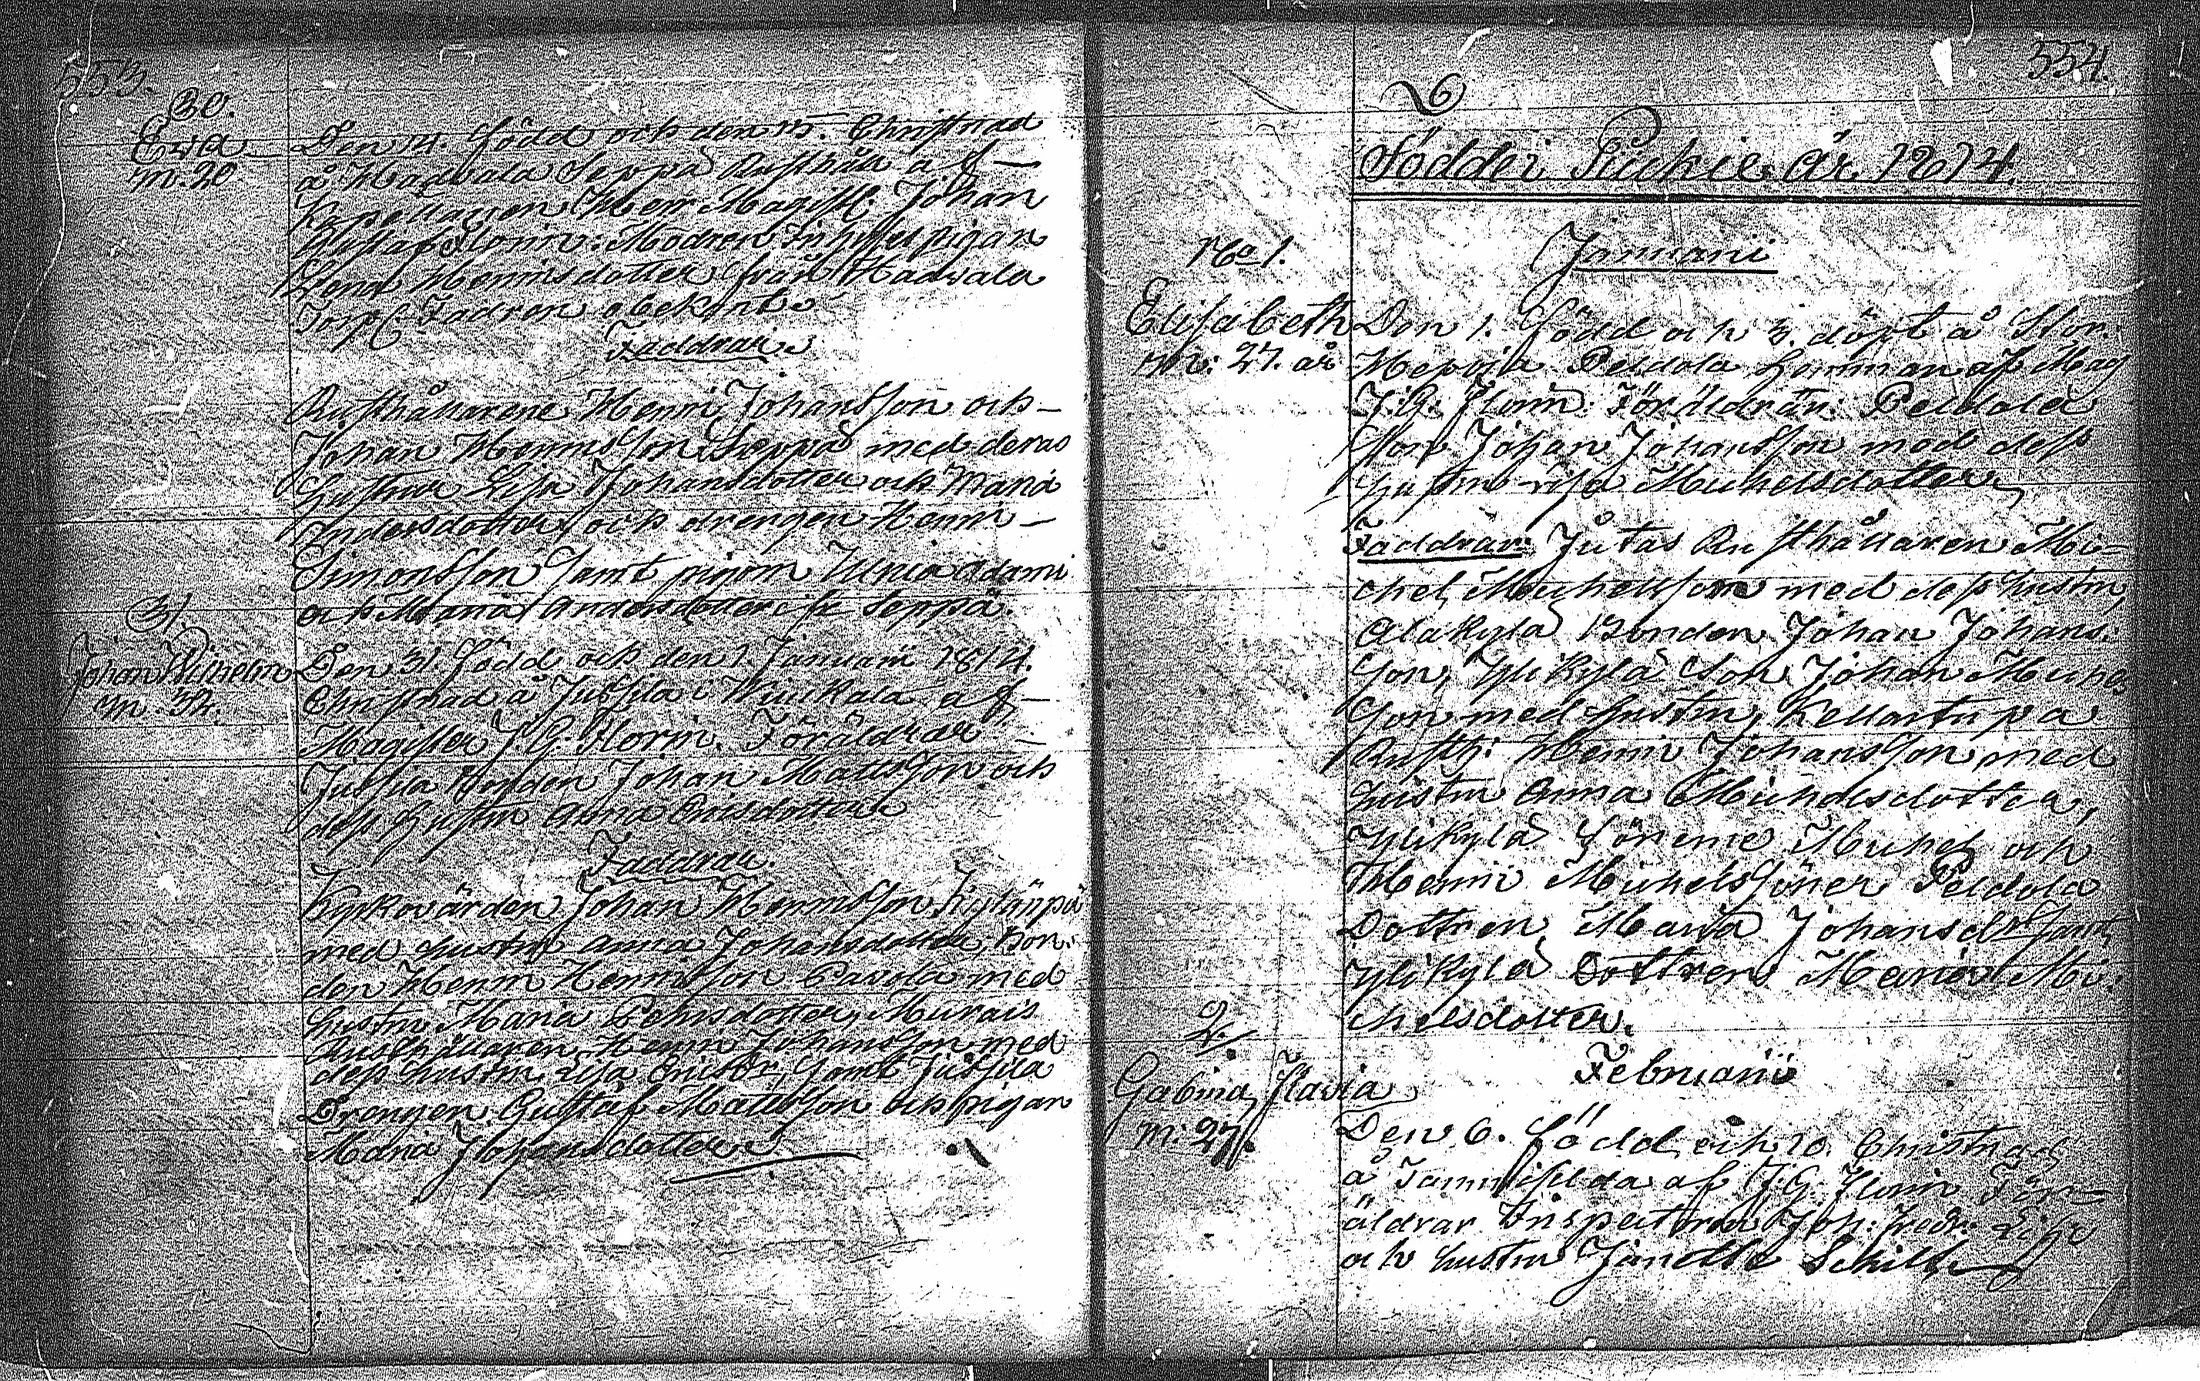 553.
30.
Eva
m. 20.
Den 14. född och den 15. Christnad
å Hadvala Seppä Rusthåll af
Kapellanen Herr Magist. Johan
Gustaf Florin. Modren Inhyses pigan
Lena Henricsdotter från Hadvala
Torp, Fadren obekant.
Faddrar.
Rusthållarene Henric Johansson och
Johan Henricsson Seppä med deras
hustrur Lisa Johansdotter och Maria
Andersdotter och drengen Henric
Simonsson samt pigorna Ulrica Adami
och Maria Andersdotter ifr. Seppä.
31.
Johan Wilhelm
m. 32.
Den 31. född och den 1. Januarii 1814.
Christnad å Jussila i af
Magister J. G. Florin. Föräldrar
Jussila Bonden Johan Mattsson och
dess hustru Anna Ericsdotter
Faddrar.
Kyrkovärden Johan Henricsson Kylänpä
med hustru Anna Johansdotter, Bon-
den Henric Henricsson Pavola med
hustru Maria Pehrsdotter,
Rusthållaren Henric Johansson med
dess hustru Lisa Ericsdr. samt Jussila
Drengen Gustaf Mattsson och pigan
Maria Johansdotter
554.
Födde i Pückie År 1814.
Januarii
No 1.
Elisabeth
m: 27. år
Den 1. född och 3. döpt å Stor-
Hepoja Peldola Hemman af Mag
J. G. Florin. Föräldrar: Peldola
Son Johan Johansson med dess
hustru Lisa Michelsdotter,
Faddrar: Jutas Rusthållaren Mi-
chel Michelsson med dess hustru,
Alakylä Bonden Johan Johans-
son, Ylikylä Son Johan Michels
son med hustru, Kellartupa
Rusth: Henric Johansson med
hustru Anna Michelsdotter,
Ylikylä Sönerne Michel och
Henric Michelssöner Peldola
Dottren Maria Johansdr samt
Ylikylä Dottren Maria Mi-
chelsdotter.
2.
Gabina Flavia
m: 27.
Februarii
Den 6. född och 10. Christnad
å af J. G. Florin För-
äldrar Inspectoren Joh: Fredr.
och hustru Janette Schilt